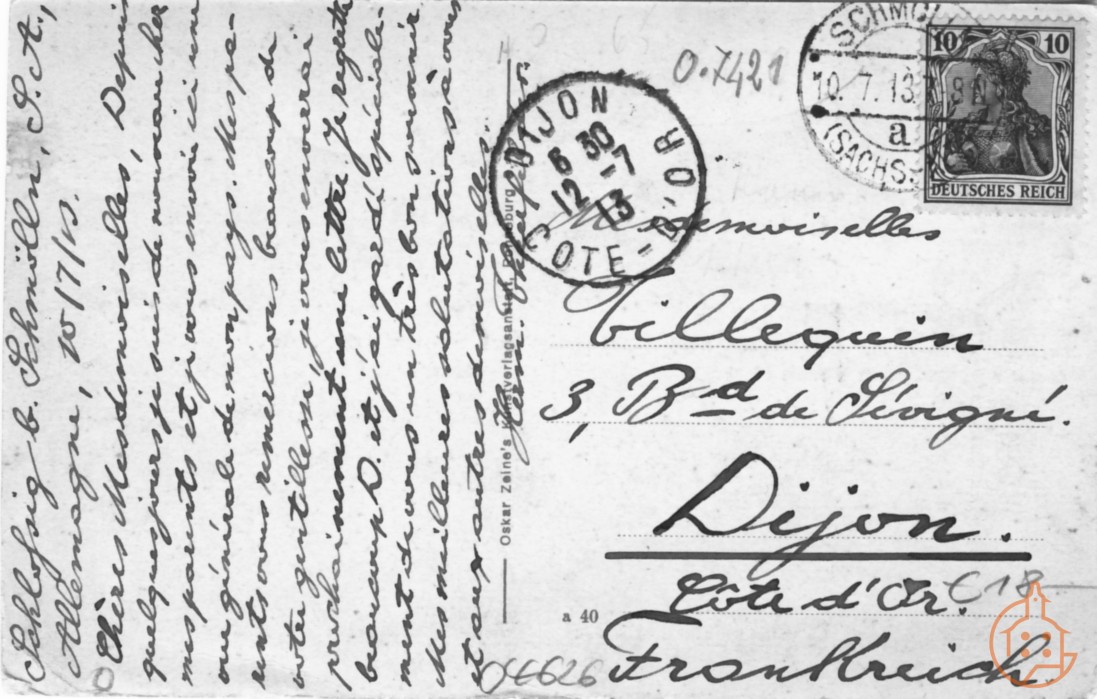 Schloßig b. Schmölln, S. A.,
Allemagne, 10/7/13.
Chères Mesdemoiselles, Depuis
quelques jours je suis de nouveau chez
mes parents et je vous envoie ici une
vue générale de mon pays. Mes pa-
rents vous remercions beaucoup de
votre gentillesse, je vous enverrai
prochainement une lettre. Je regrette
beaucoup D. et j'ai gardé spéciale-
ment de vous un très bon souvenir.
Mes meilleures salutations à vous
et aux autres demoiselles.
Oskar Zeine's Kunstverlagsanstalt
a 40
0.7421
DIJON
6 30
12 -7
13
COTE-D'OR
SCHMÖLLN
10.7.13. 7-8N
a
(SACHS.
10 10
DEUTSCHES REICH
Mesdemoiselles
Villequin
3, Bd de Sévigné.
Dijon.
Côte d'Or.
Frankreich.
C18
04626